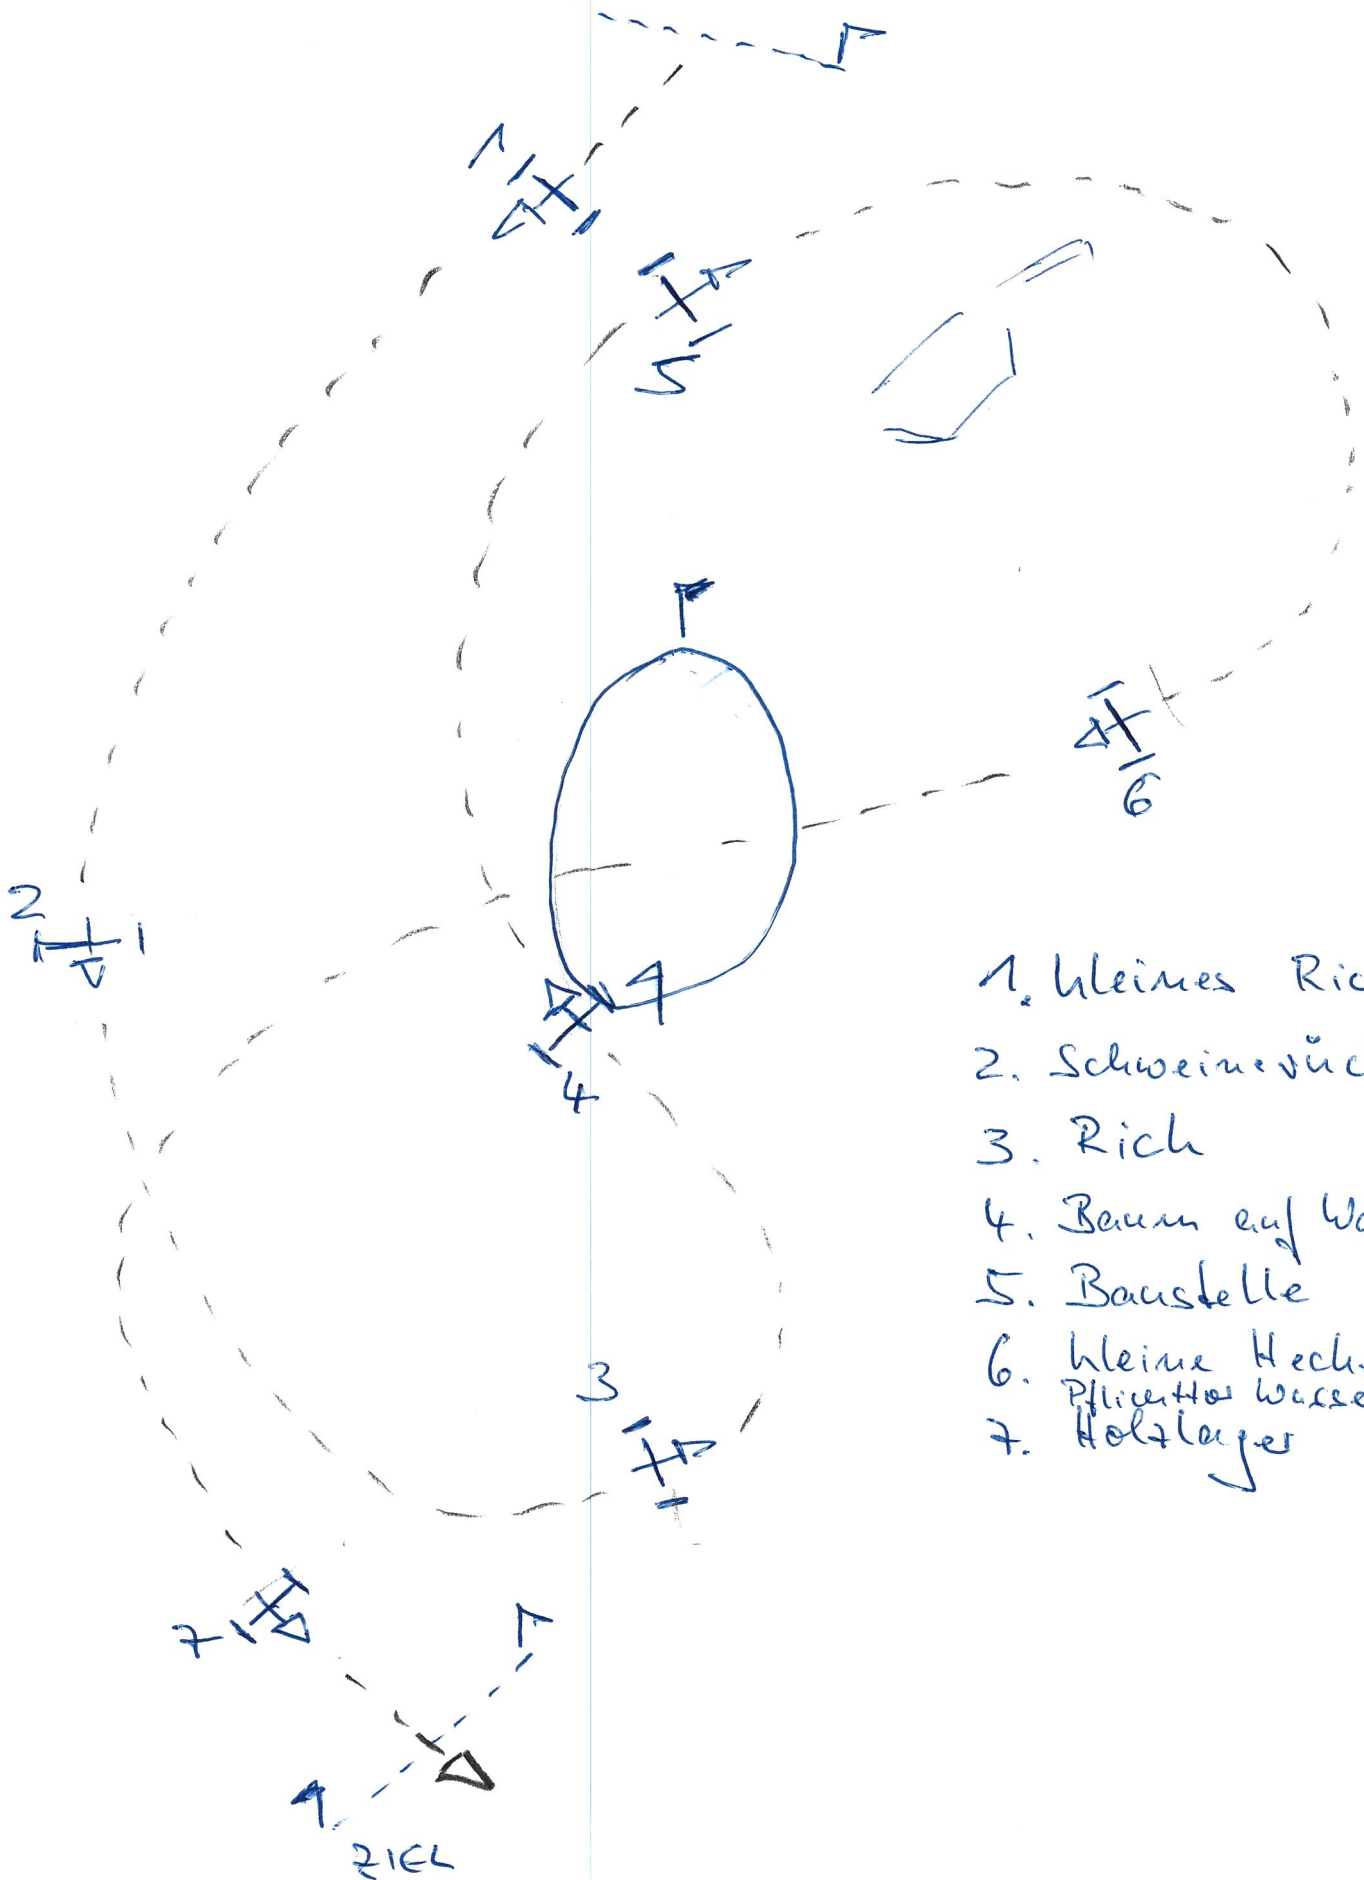 1
5
2
6
4
3
7
ZIEL
1. kleines Ric
2. Schweinerüc
3. Rich
4. Baum auf Wa
5. Baustelle
6. kleine Heck
Pflichttor Wasse
7. Holzlager